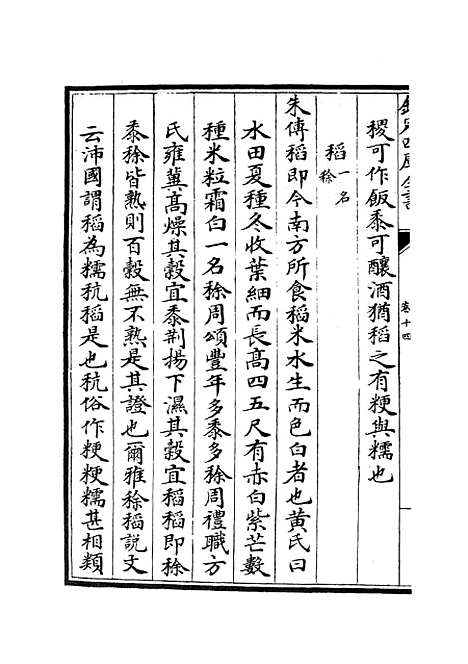 欽定四庫全書
卷十四
稷可作飯黍可釀酒猶稻之有粳與糯也
稻一名稌
朱傳稻即今南方所食稻米水生而色白者也黃氏曰
水田夏種冬收葉細而長高四五尺有赤白紫芒數
種米粒霜白一名稌周頌豐年多黍多稌周禮職方
氏雍冀髙燥其穀宜黍荆揚下濕其穀宜稻稻即稌
黍稌皆熟則百穀無不熟是其證也爾雅稌稻說文
云沛國謂稻為糯秔稻是也秔俗作粳粳糯甚相類